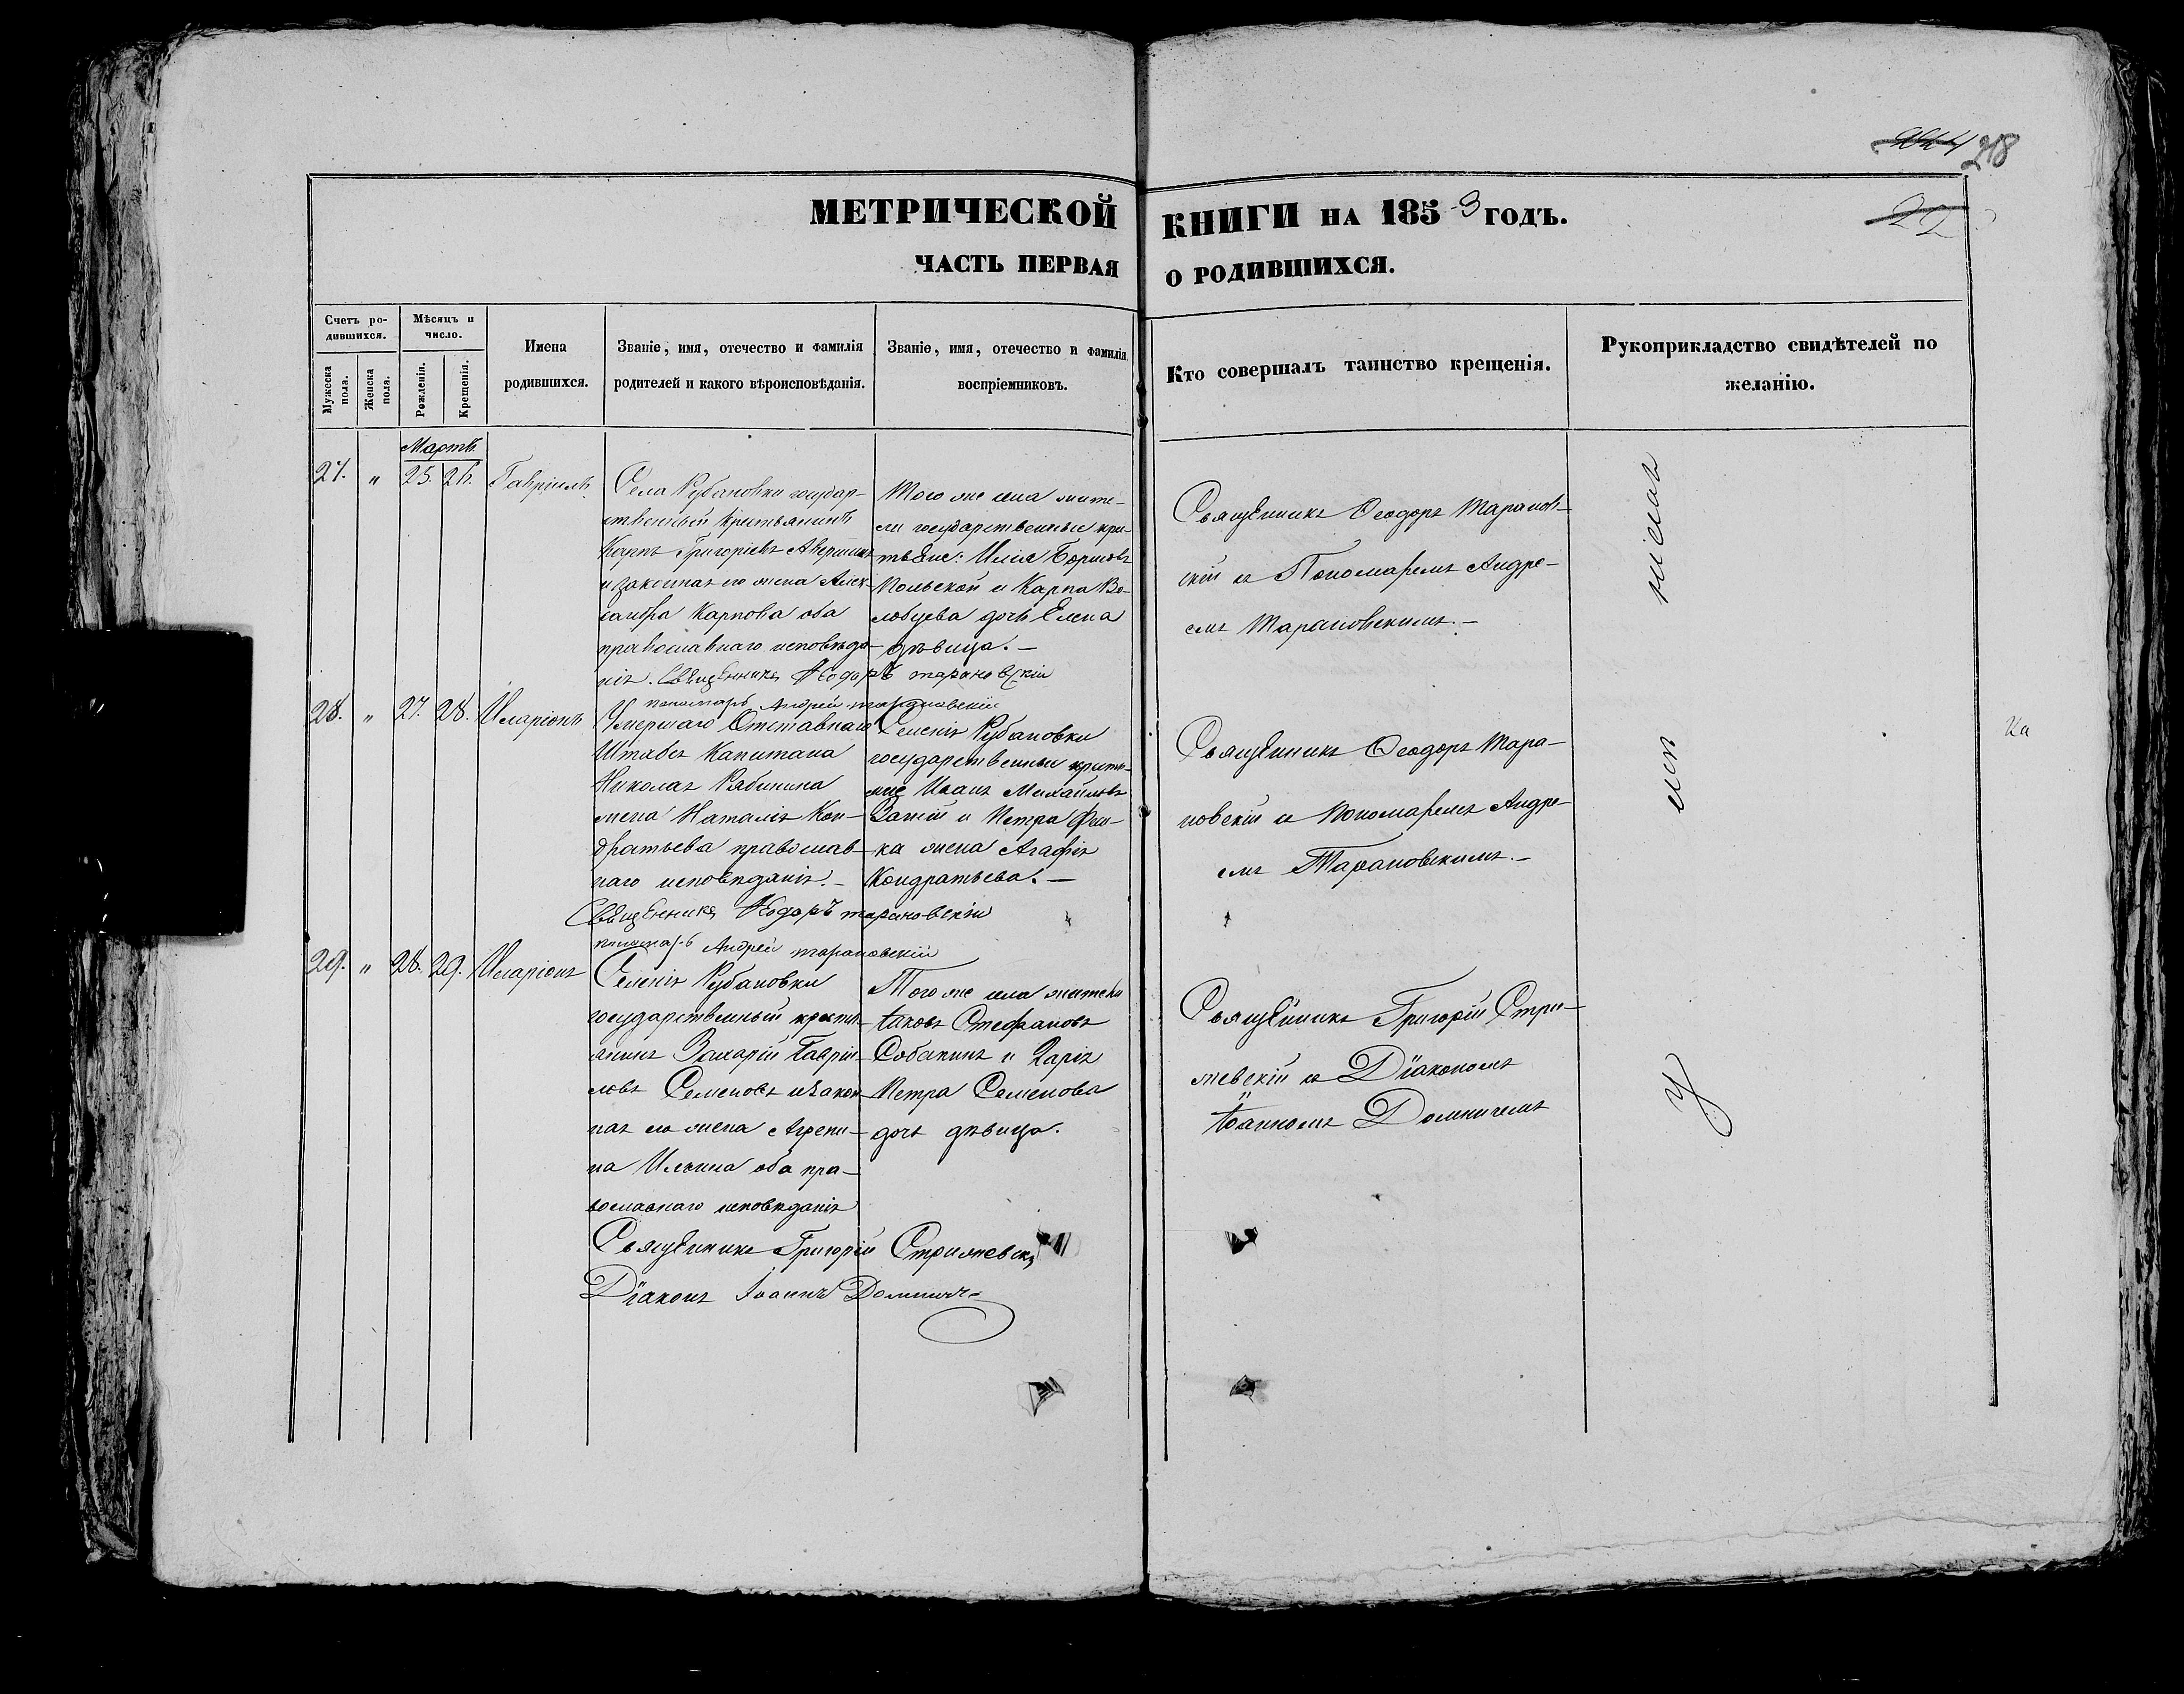 218
МЕТРИЧЕСКОЙ КНИГИ НА 1853 ГОДЪ.
22
ЧАСТЬ ПЕРВАЯ О РОДИВШИХСЯ.
Счетъ родившихся.
Мужеска пола.
Женска пола.
Мѣсяцъ и число.
Рожденія.
Крещенія.
Имена родившихся.
Званіе, имя, отечество и фамилія родителей и какого вѣроисповѣданія.
Званіе, имя, отечество и фамилія воспріемниковъ.
Кто совершалъ таинство крещенія.
Рукоприкладство свидѣтелей по желанію.
Мартъ.
27. „ 25. 26. Гавріилъ
Села Рубановки государ-
ственный крестьянинъ
Карпъ Григоріевъ
и законная его жена Алек-
сандра Карпова оба
православнаго исповѣда-
нія. Священникъ Ѳеодоръ Тарановскій
пономарь Андрей Тарановскій
Того же села жите-
ли государственные кре-
стьяне: Илія Борисовъ
Польской и Карпа
дочь Елена
дѣвица. —
Священникъ Ѳеодоръ Таранов-
скій съ Пономаремъ Андре-
емъ Тарановскимъ. —
28. „ 27. 28. Иларіонъ
Умершаго Отставнаго
Штабсъ Капитана
Николая Рябинина
жена Наталія Кон-
дратьева православ-
наго исповѣданія. —
Священникъ Ѳеодоръ Тарановскій
пономарь Андрей Тарановскій
Селенія Рубановки
государственные кресть-
яне Иванъ Михайловъ
и Петра
жена Агафія
Кондратьева. —
Священникъ Ѳеодоръ Тара-
новскій съ Пономаремъ Андре-
емъ Тарановскимъ. —
29. „ 28. 29. Иларіонъ
Селенія Рубановки
государственный кресть-
янинъ Захарій Гаврiи-
ловъ Семеновъ и закон-
ная его жена Агрепи-
на Ильина оба пра-
вославнаго исповѣданія
Священникъ Григорій Стрижевскій
Діаконъ Іоаннъ Домничъ
Того же села житель
Іаковъ Стефановъ
Собакинъ и Дарія
Петра Семенова
дочь дѣвица.
Священникъ Григорій Стри-
жевскій съ Діакономъ
Іоанномъ Домничемъ